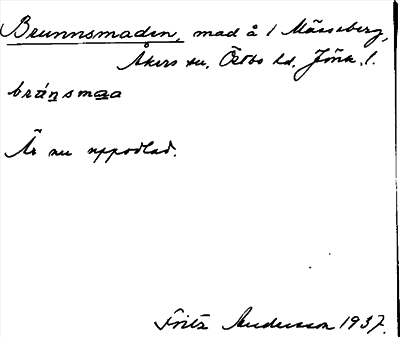 Brunnsmaden, mad å 1 Mässeberg,
Åkers sn, Östbo hd, Jönk. l.
bránsmaa
Är nu uppodlad.
Fritz Andersson 1937.